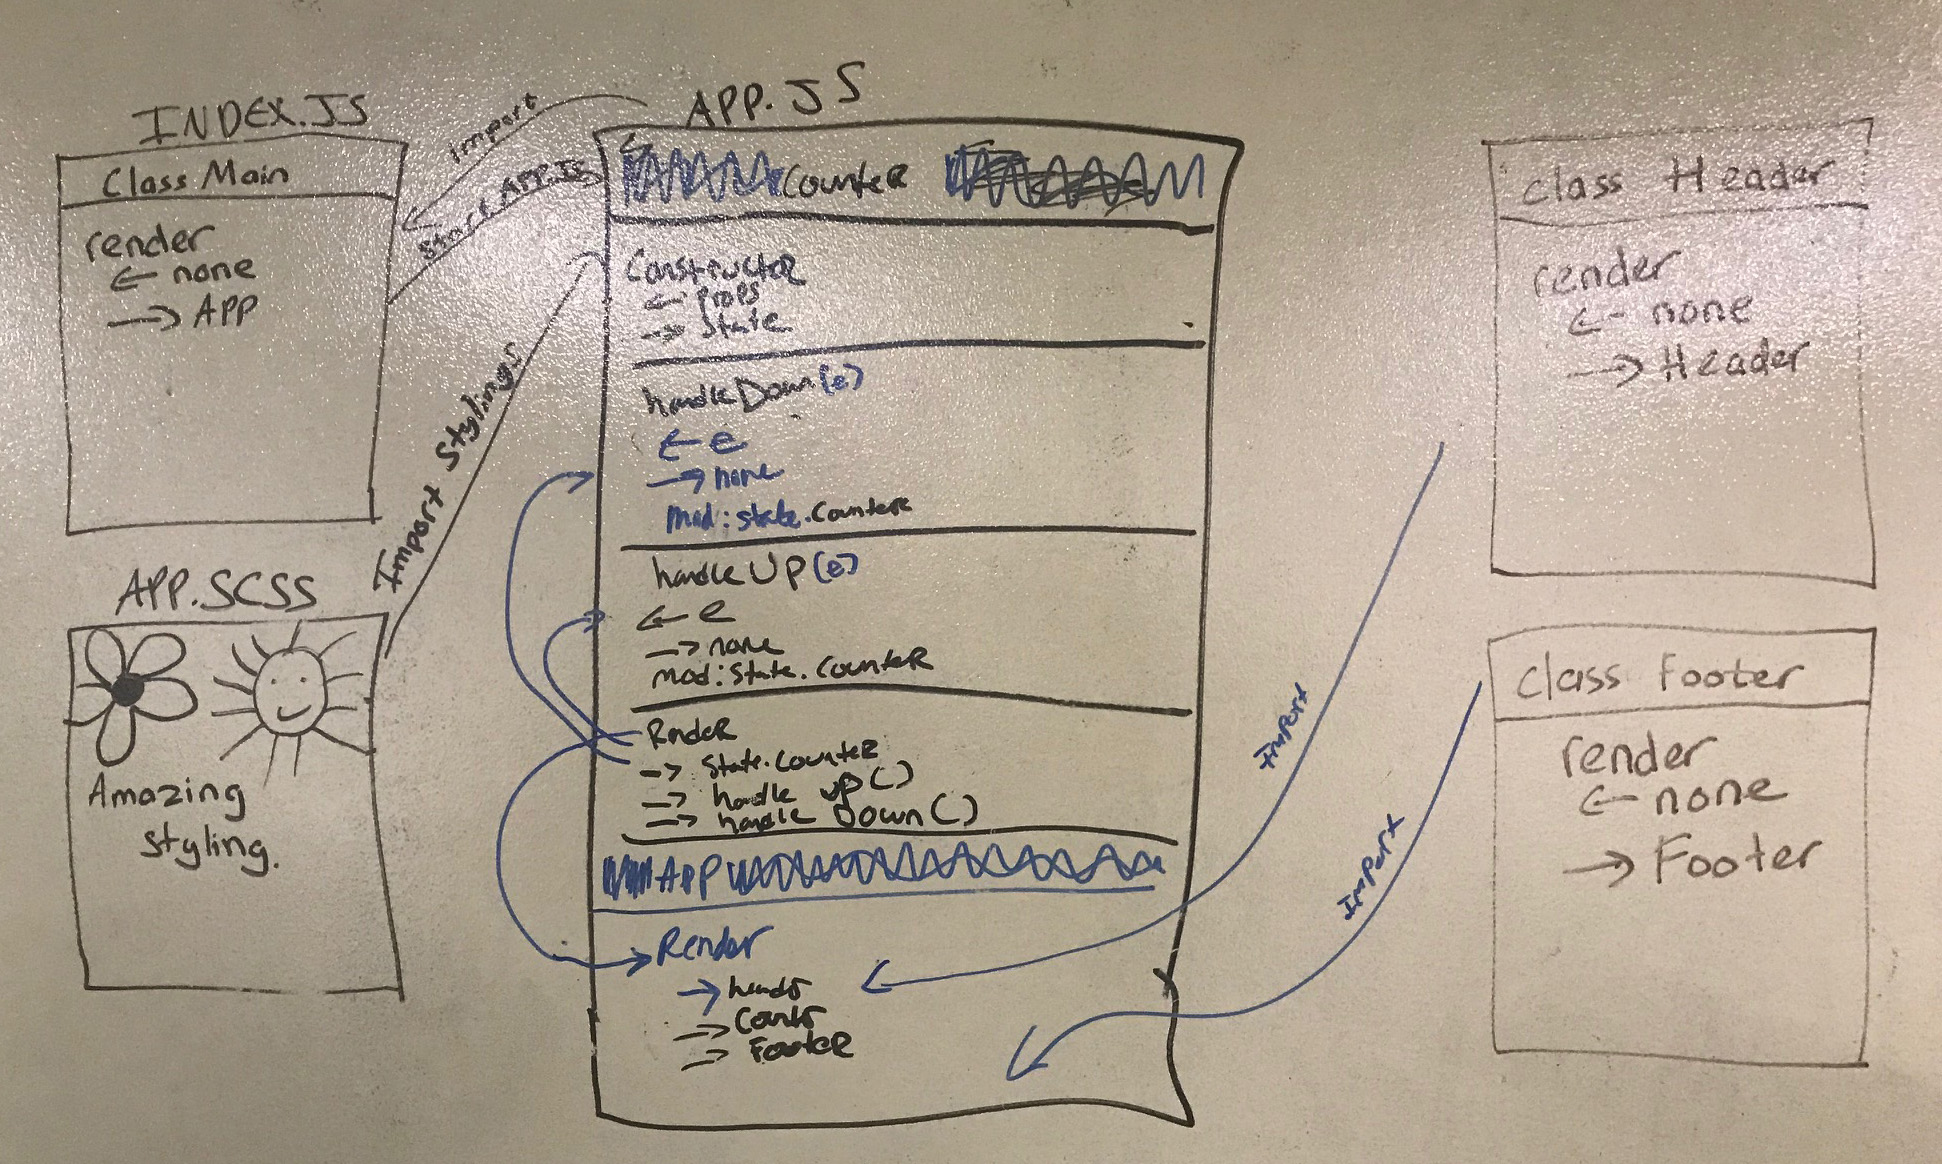 INDEX.JS
Class Main
render
← none
→ APP
Import
Start APP.JS
Import Stylings
APP.SCSS
Amazing
styling.
APP.JS
Counter
Constructor
← Props
→ State
handleDown(e)
← e
→ none
mod: state.Counter
handleUp(e)
← e
→ none
mod: State.Counter
Render
→ State.Counter
→ handle up()
→ handle Down()
APP
Render
→ header
→ Counter
→ Footer
Import
Import
class Header
render
← none
→ Header
class Footer
render
← none
→ Footer